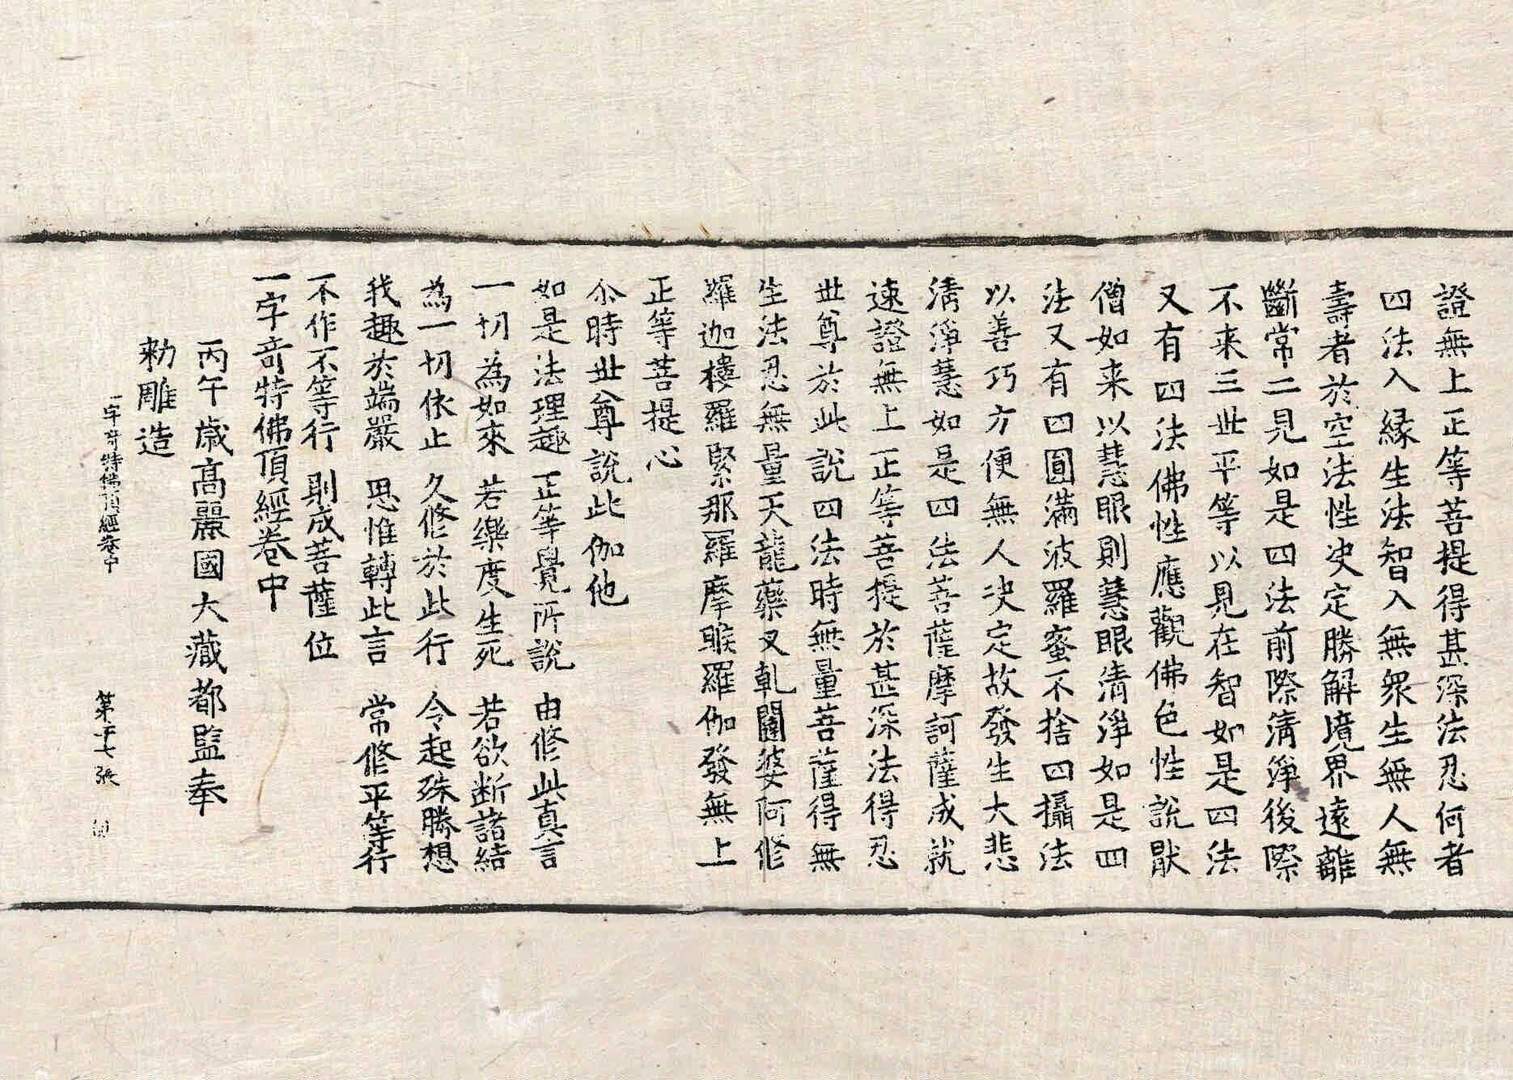 證無上正等菩提得甚深法忍何者
四法入縁生法智入無衆生無人無
壽者於空法性決定勝解境界遠離
斷常二見如是四法前際清淨後際
不来三世平等以見在智如是四法
又有四法佛性應觀佛色性說猒
僧如来以慧眼則慧眼清淨如是四
法又有四圓滿波羅蜜不捨四攝法
以善巧方便無人決定故發生大悲
清淨慧如是四法菩薩摩訶薩成就
速證無上正等菩提於甚深法得忍
世尊於此說四法時無量菩薩得無
生法忍無量天龍藥叉軋闥婆阿修
羅迦樓羅緊那羅摩睺羅伽發無上
正等菩提心
尒時世尊說此伽他
如是法理趣 正等覺所說 由修此真言
一切為如來 若樂度生死 若欲断諸結
為一切依止 久修於此行 令起殊勝想
我趣於端嚴 思惟轉此言 常修平等行
不作不等行 則成菩薩位
一字奇特佛頂經卷中
丙午歲高麗國大藏都監奉
勅雕造
一字奇特佛頂經卷中 第 七張